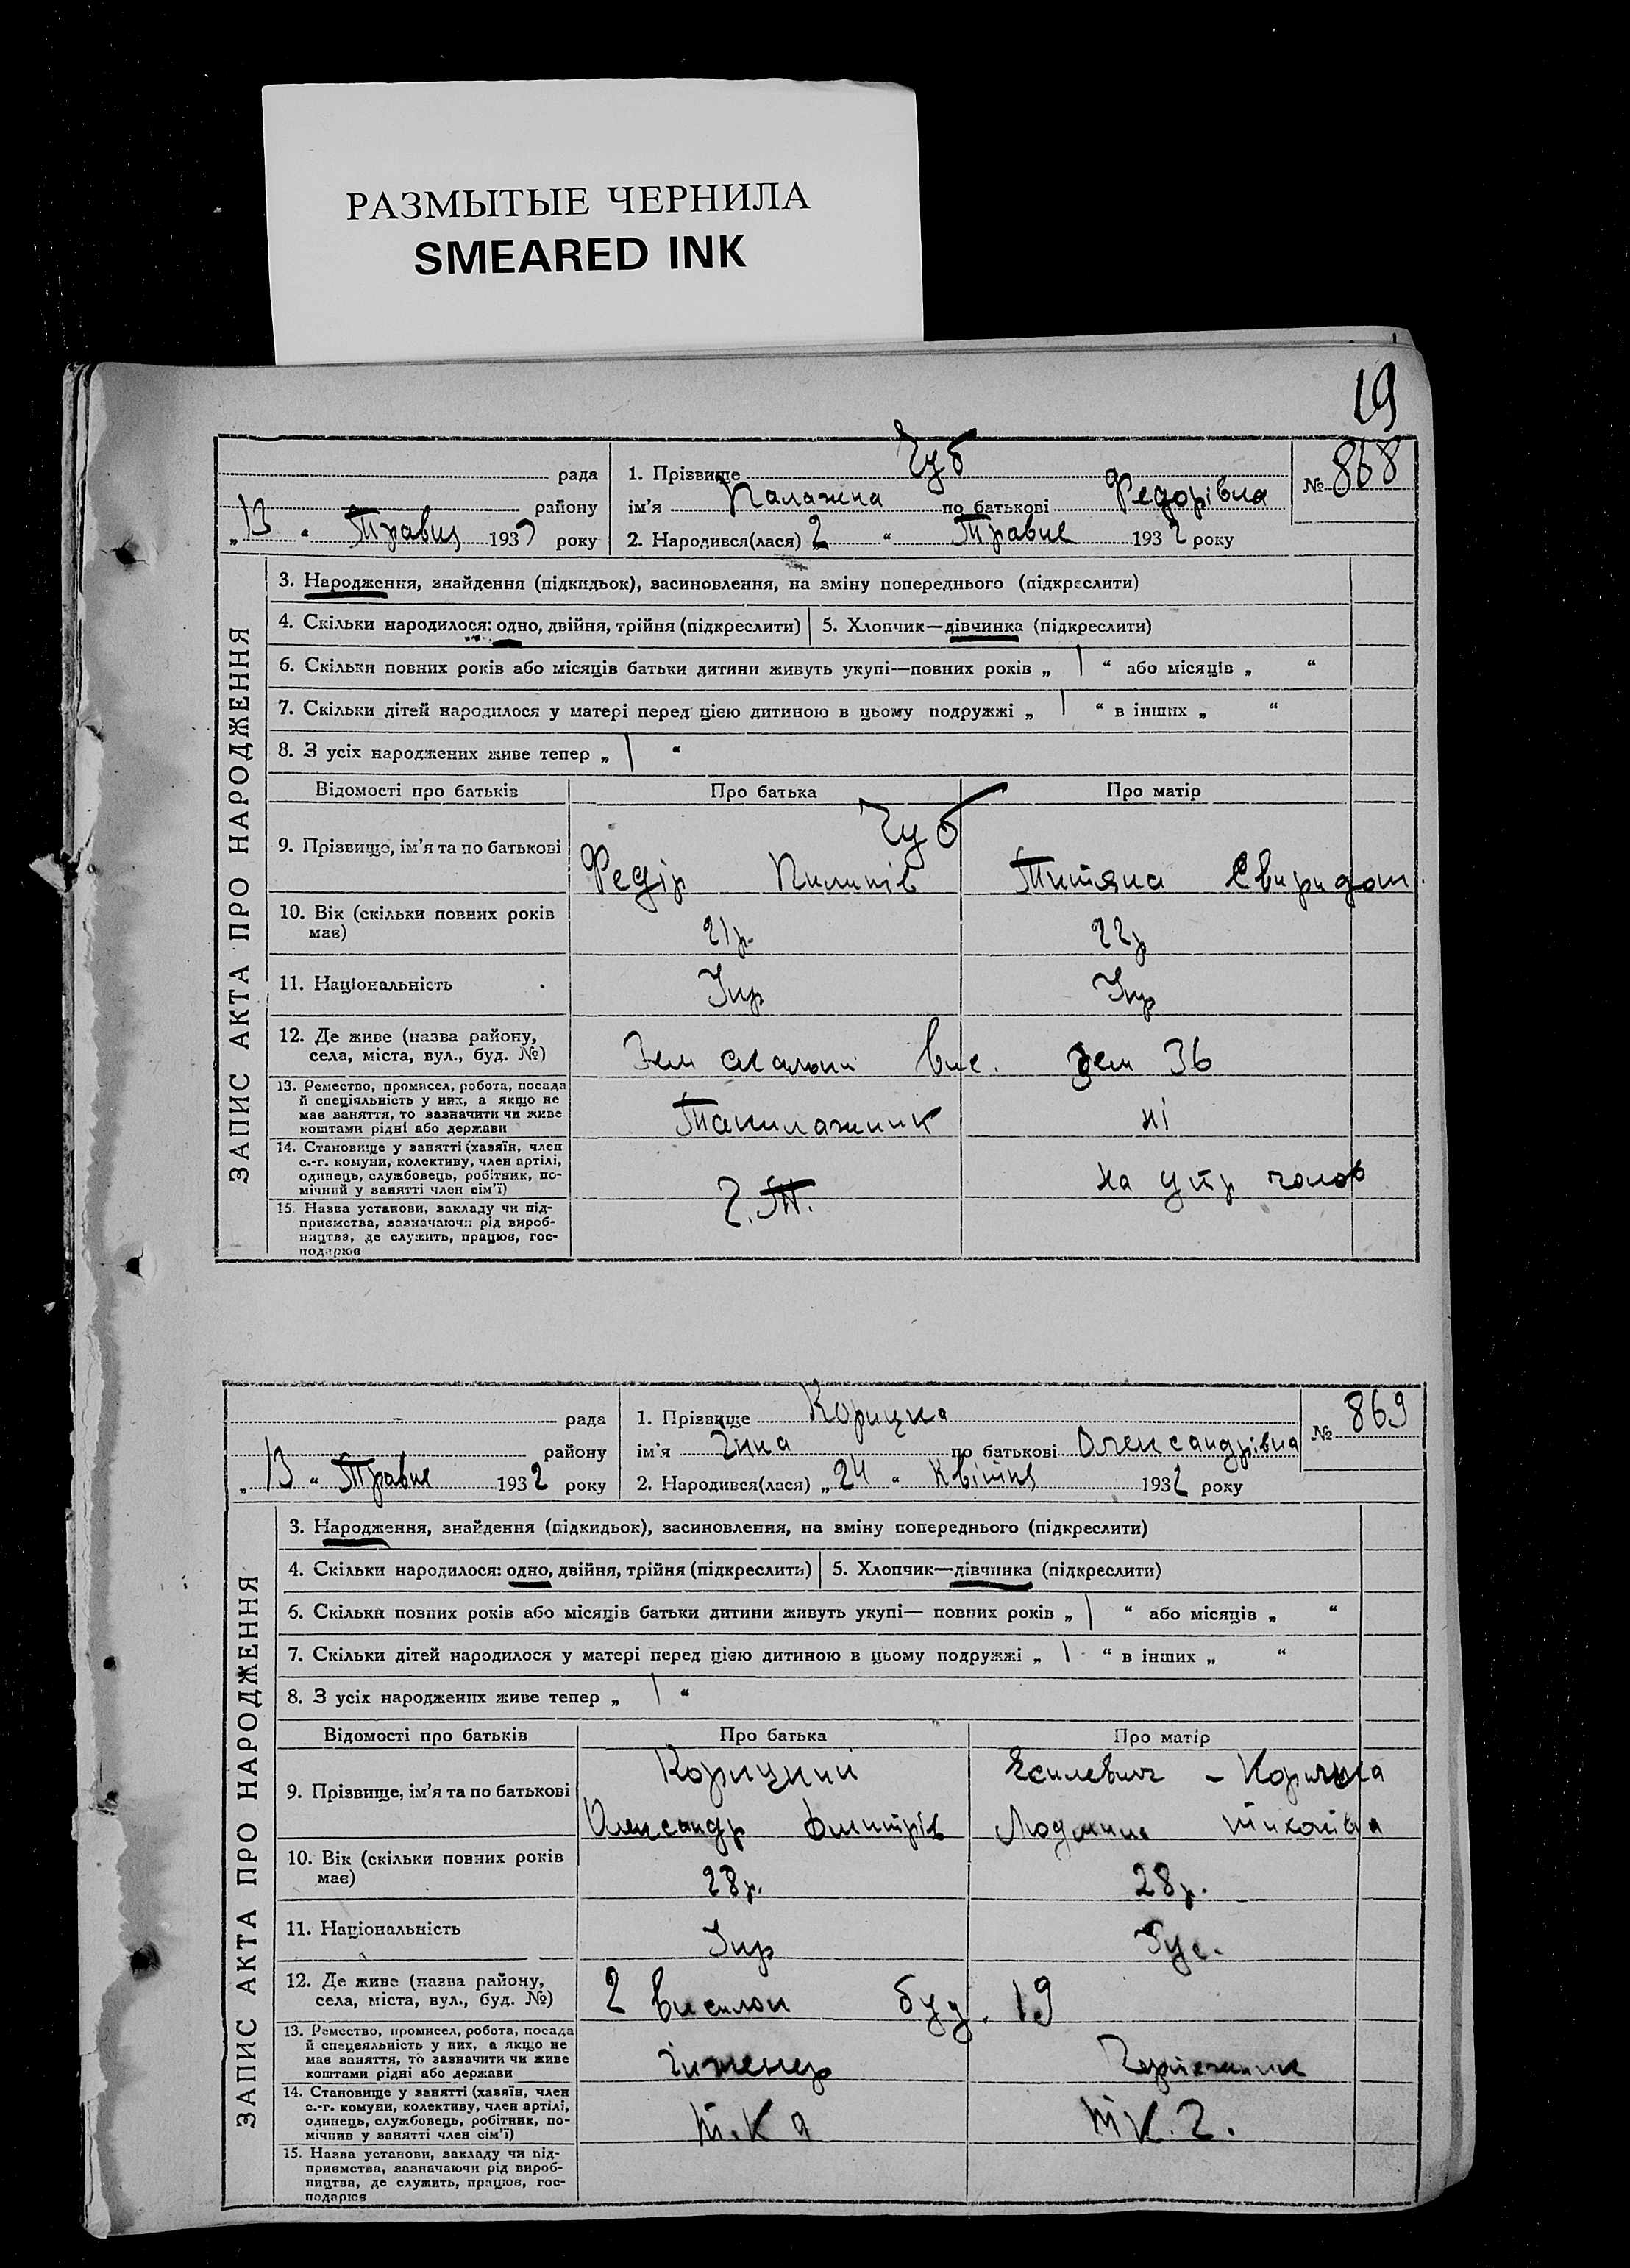 РАЗМЫТЫЕ ЧЕРНИЛА
SMEARED INK
19
ЗАПИС АКТА ПРО НАРОДЖЕННЯ
рада
району
„13 “ Травня 193 року
1. Прізвище Чуб
№ 868
ім'я Палажка по батькові Федорівна
2. Народився(лася) 2 “ Травня 1932 року
3. Народження, знайдення (підкидьок), засиновлення, на зміну попереднього (підкреслити)
4. Скільки народилося: одно, двійня, трійня (підкреслити) 5. Хлопчик—дівчинка (підкреслити)
6. Скільки повних років або місяців батьки дитини живуть укупі—повних років „ 1 “ або місяців „ “
7. Скільки дітей народилося у матері перед цією дитиною в цьому подружжі „ 1 “ в інших „ “
8. З усіх народжених живе тепер „ 1 “
Відомості про батьків Про батька Про матір
9. Прізвище, ім'я та по батькові
Чуб
Федір Пилипів Титяна Свиридон.
10. Вік (скільки повних років має)
21р. 22р
11. Національність
Укр Укр
12. Де живе (назва району, села, міста, вул., буд. №)
Зем Вис. зем 36
13. Ремество, промисел, робота, посада й спеціяльність у них, а якщо не має заняття, то зазначити чи живе коштами рідні або держави
ні
14. Становище у занятті (хазяїн, член с.-г. комуни, колективу, член артілі, одинець, службовець, робітник, помічний у занятті член сім'ї)
на утр чолов
15. Назва установи, закладу чи підприємства, зазначаючи рід виробництва, де служить, працює, господарює
ЗАПИС АКТА ПРО НАРОДЖЕННЯ
рада
району
„ 13 “ Травня 1932 року
1. Прізвище Корицка
№ 869
ім'я Інна по батькові Олександрівна
2. Народився(лася) „ 24 “ Квітня 1932 року
3. Народження, знайдення (підкидьок), засиновлення, на зміну попереднього (підкреслити)
4. Скільки народилося: одно, двійня, трійня (підкреслить) 5. Хлопчик—дівчинка (підкреслити)
6. Скільки повних років або місяців батьки дитини живуть укупі— повних років „ 1 “ або місяців „ “
7. Скільки дітей народилося у матері перед цією дитиною в цьому подружжі „ 1 “ в інших „ “
8. З усіх народжених живе тепер „ 1 “
Відомості про батьків Про батька Про матір
9. Прізвище, ім'я та по батькові
Корицкий – Корицка
Олександр Дмитрів Людмила Миколаївна
10. Вік (скільки повних років має)
28р. 28р.
11. Національність
Укр Рус.
12. Де живе (назва району, села, міста, вул., буд. №)
2 Виселок буд. 19
13. Ремество, промисел, робота, посада й спецеяльність у них, а якщо не має заняття, то зазначити чи живе коштами рідні або держави
Інженер
14. Становище у занятті (хазяїн, член с.-г. комуни, колективу, член артілі, одинець, службовець, робітник, помічнив у занятті член сім'ї)
15. Назва установи, закладу чи підприємства, зазначаючи рід виробництва, де служить, працює, господарює